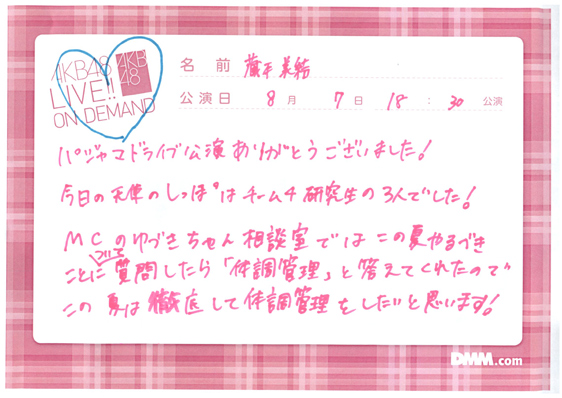 AKB48
LIVE!!
ON DEMAND
AKB
48
名前 蔵本美結
公演日 8月 7日 18:30 公演
パジャマドライブ公演ありがとうございました!
今日の天使のしっぽはチーム4研究生の3人でした!
MCのゆづきちゃん相談室ではこの夏やるづき
ことについて質問したら「体調管理」と答えてくれたので
この夏は徹底して体調管理をしたいと思います!
DMM.com